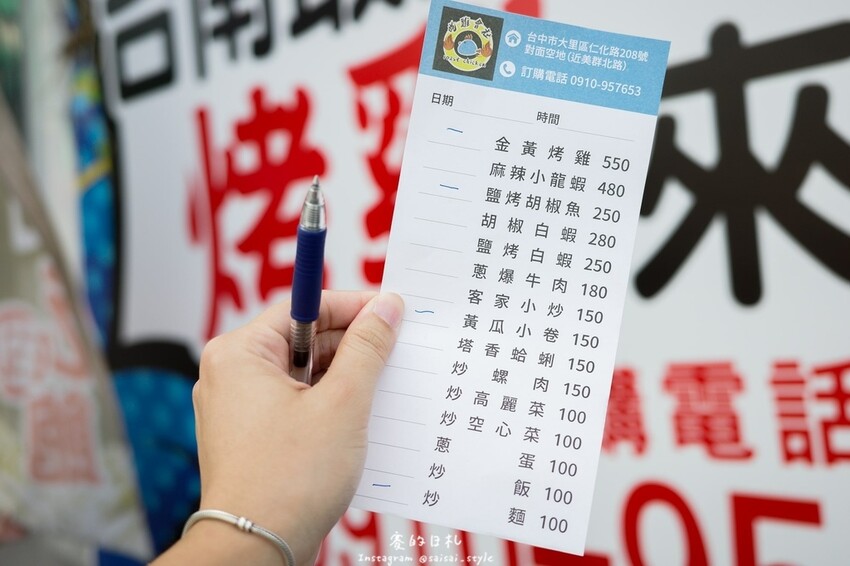 台南
烤雞
來
購電話
台中市大里區仁化路208號
對面空地(近美群北路)
訂購電話 0910-957653
日期
時間
一 金黃烤雞 550
麻辣小龍蝦 480
一 鹽烤胡椒魚 250
胡椒白蝦 280
鹽烤白蝦 250
蔥爆牛肉 180
客家小炒 150
一 黃瓜小卷 150
塔香蛤蜊 150
炒螺肉 150
炒高麗菜 100
炒空心菜 100
蔥蛋 100
炒飯 100
一 炒麵 100
賽的日札
Instagram @saisai_style